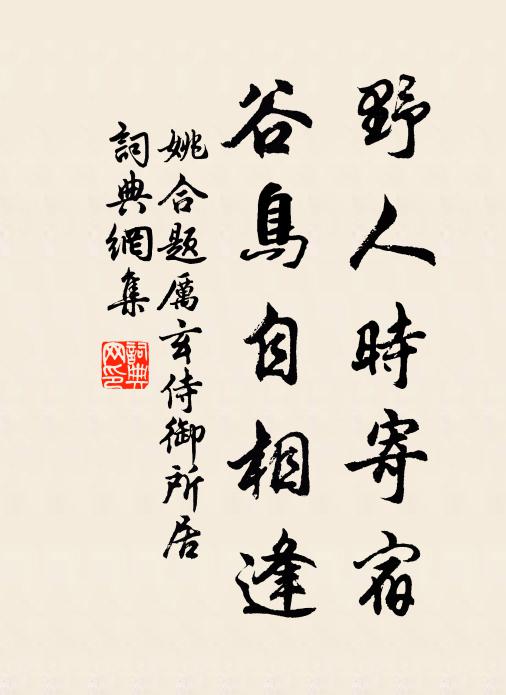 野人時寄宿
谷鳥自相逢
姚合題厲玄侍御所居
詞典網集
詞典網印